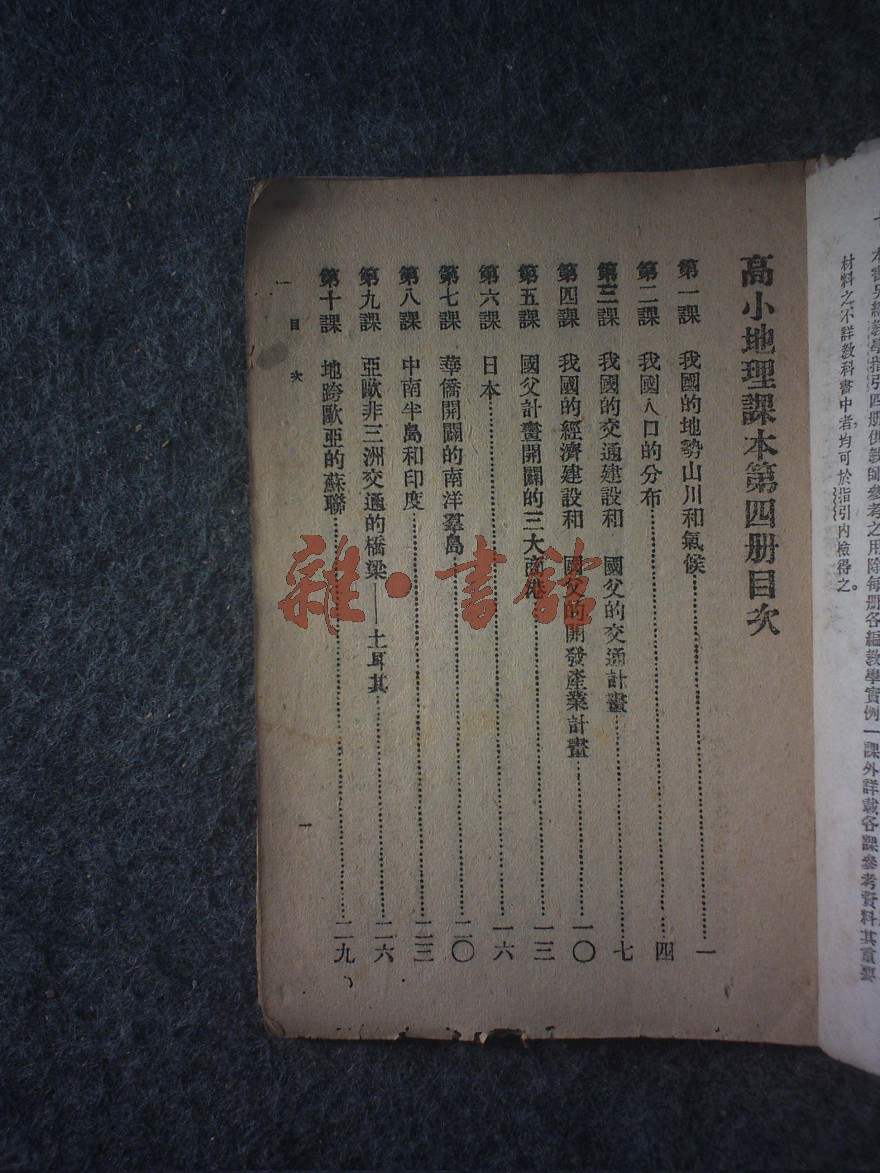 本書另編教學指引四册供教師參考之用除每册各編教學實例一課外詳載各課參考資料其重要
材料之不詳教科書中者均可於指引內檢得之。
高小地理課本第四册目次
第一課 我國的地勢山川和氣候……一
第二課 我國人口的分布……四
第三課 我國的交通建設和 國父的交通計畫……七
第四課 我國的經濟建設和 國父的開發產業計畫……一〇
第五課 國父計畫開闢的三大商港……一三
第六課 日本……一六
第七課 華僑開闢的南洋羣島……二〇
第八課 中南半島和印度……二三
第九課 亞歐非三洲交通的橋梁——土耳其……二六
第十課 地跨歐亞的蘇聯……二九
目次
一
雜·書館